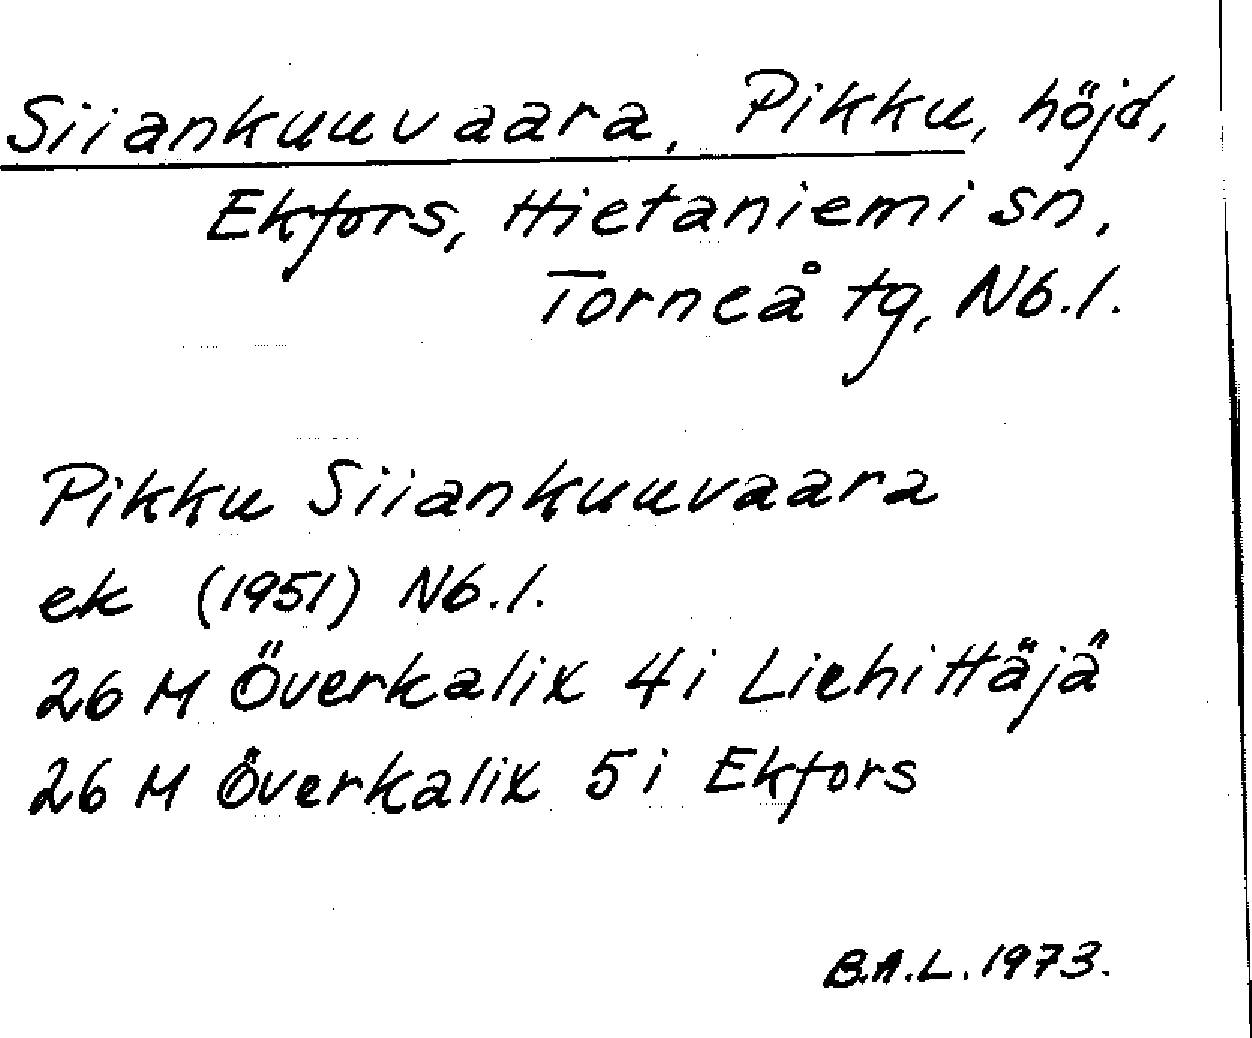 Siiankuuvaara, Pikku, höjd,
Ekfors, Hietaniemi sn,
Torneå tg, Nb.l.
Pikku Siiankuuvaara
ek (1951) Nb.l.
26 M Överkalix 4i Liehittäjä
26 M Överkalix 5i Ekfors
B.A.L. 1973.